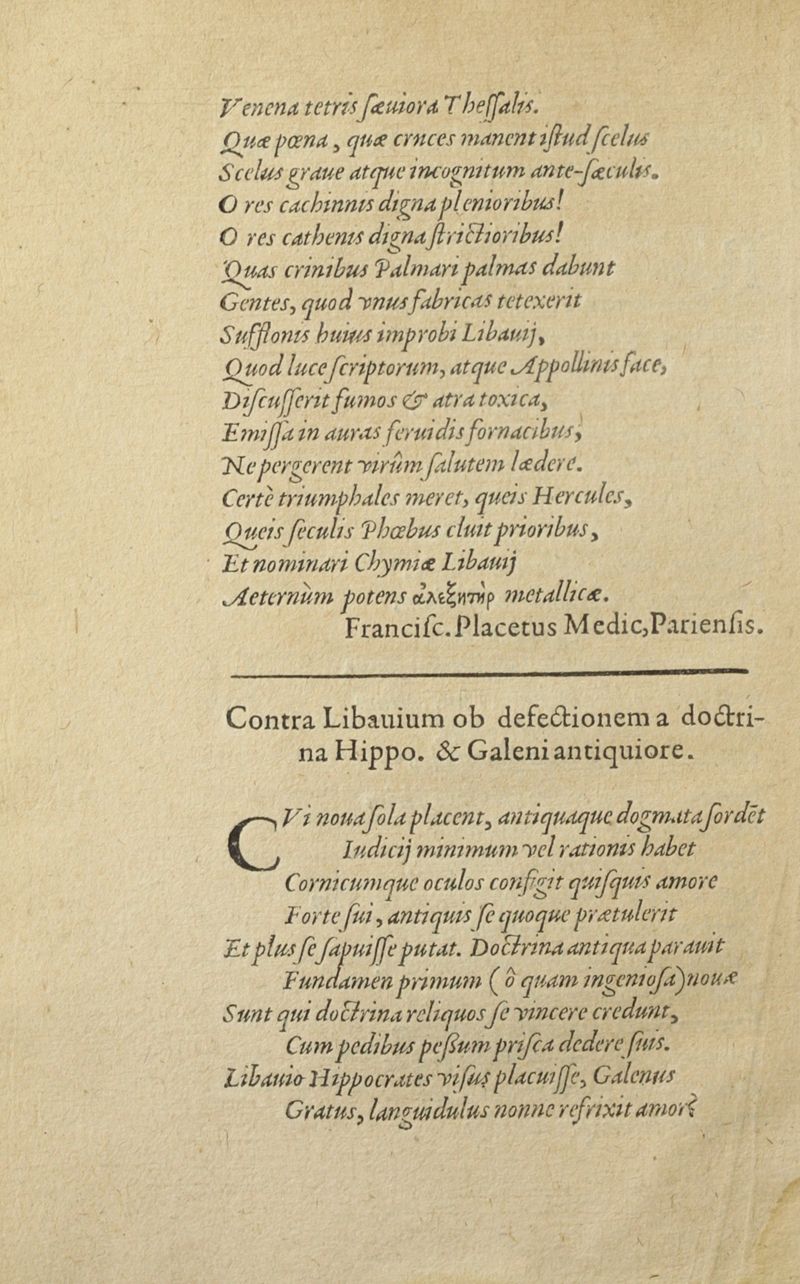 Venena tetris ſæuiora Theſſalis.
Quæ pœna, quæ cruces manent iſtud ſcelus
Scelus graue atque incognitum ante-ſæculis.
O res cachinnis digna plenioribus!
O res cathenis digna ſtrictioribus!
Quas crinibus Palmari palmas dabunt
Gentes, quod vnus fabricas tetexerit
Sufflonis huius improbi Libauij,
Quod luce ſcriptorum, atque Appollinis face,
Diſcuſſerit fumos & atra toxica,
Emiſſa in auras feruidis fornacibus,
Ne pergerent virûm ſalutem lædere.
Certè triumphales meret, queis Hercules,
Queis ſeculis Phœbus cluit prioribus,
Et nominari Chymiæ Libauij
Aeternùm potens ἀλεξητὴρ metallicæ.
Franciſc. Placetus Medic, Parienſis.
Contra Libauium ob defectionem a doctri-
na Hippo. & Galeni antiquiore.
CVi noua ſola placent, antiquaque dogmata ſordēt
Iudicij minimum vel rationis habet
Cornicumque oculos configit quiſquis amore
Forte ſui, antiquis ſe quoque prætulerit
Et plus ſe ſapuiſſe putat. Doctrina antiqua parauit
Fundamen primum (ô quam ingenioſa) nouæ
Sunt qui doctrina reliquos ſe vincere credunt,
Cum pedibus peſſum priſca dedere ſuis.
Libauio Hippocrates viſus placuiſſe, Galenus
Gratus, languidulus nonne refrixit amor?